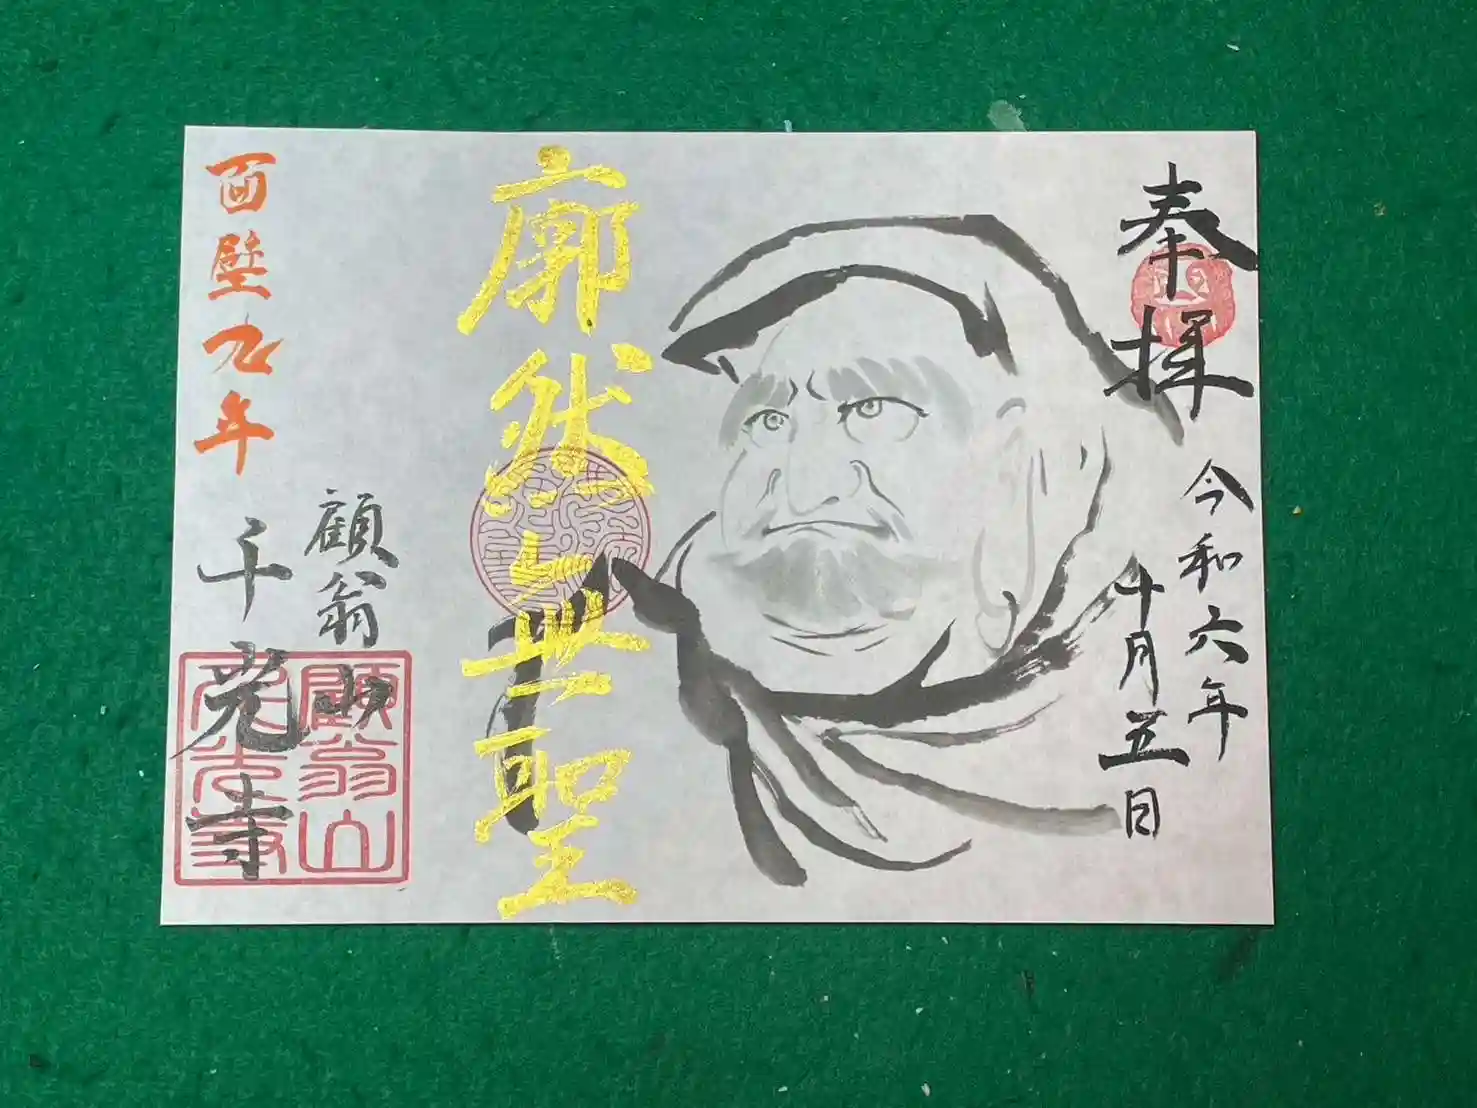 奉拝
令和六年
十月五日
廓然無聖
面壁九年
顧翁山
千光寺
顧翁山
千光寺